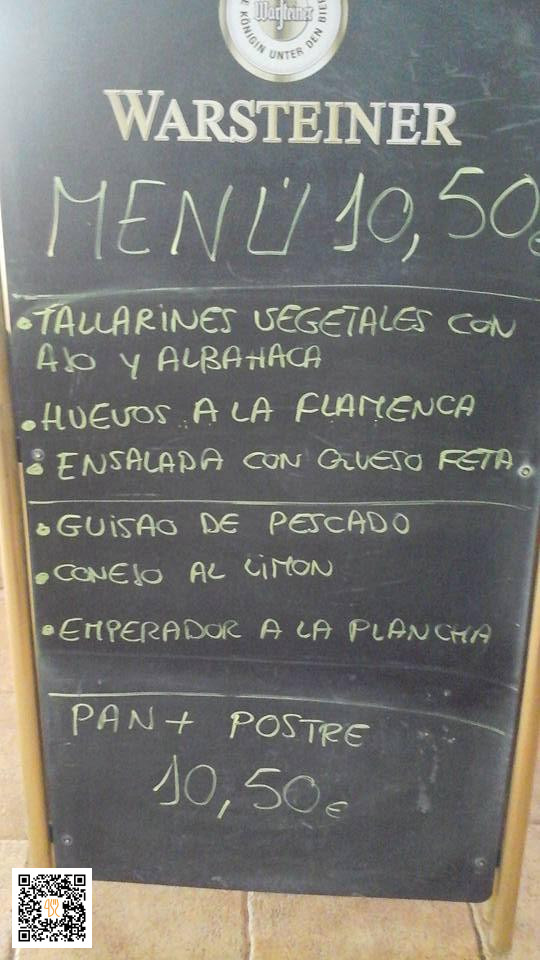 Warsteiner
E KÖNIGIN UNTER DEN BIE
WARSTEINER
MENÚ 10,50€
• TALLARINES VEGETALES CON
AJO Y ALBAHACA
• HUEVOS A LA FLAMENCA
• ENSALADA CON QUESO FETA.
• GUISAO DE PESCADO
• CONEJO AL LIMON
• EMPERADOR A LA PLANCHA
PAN + POSTRE
10,50€